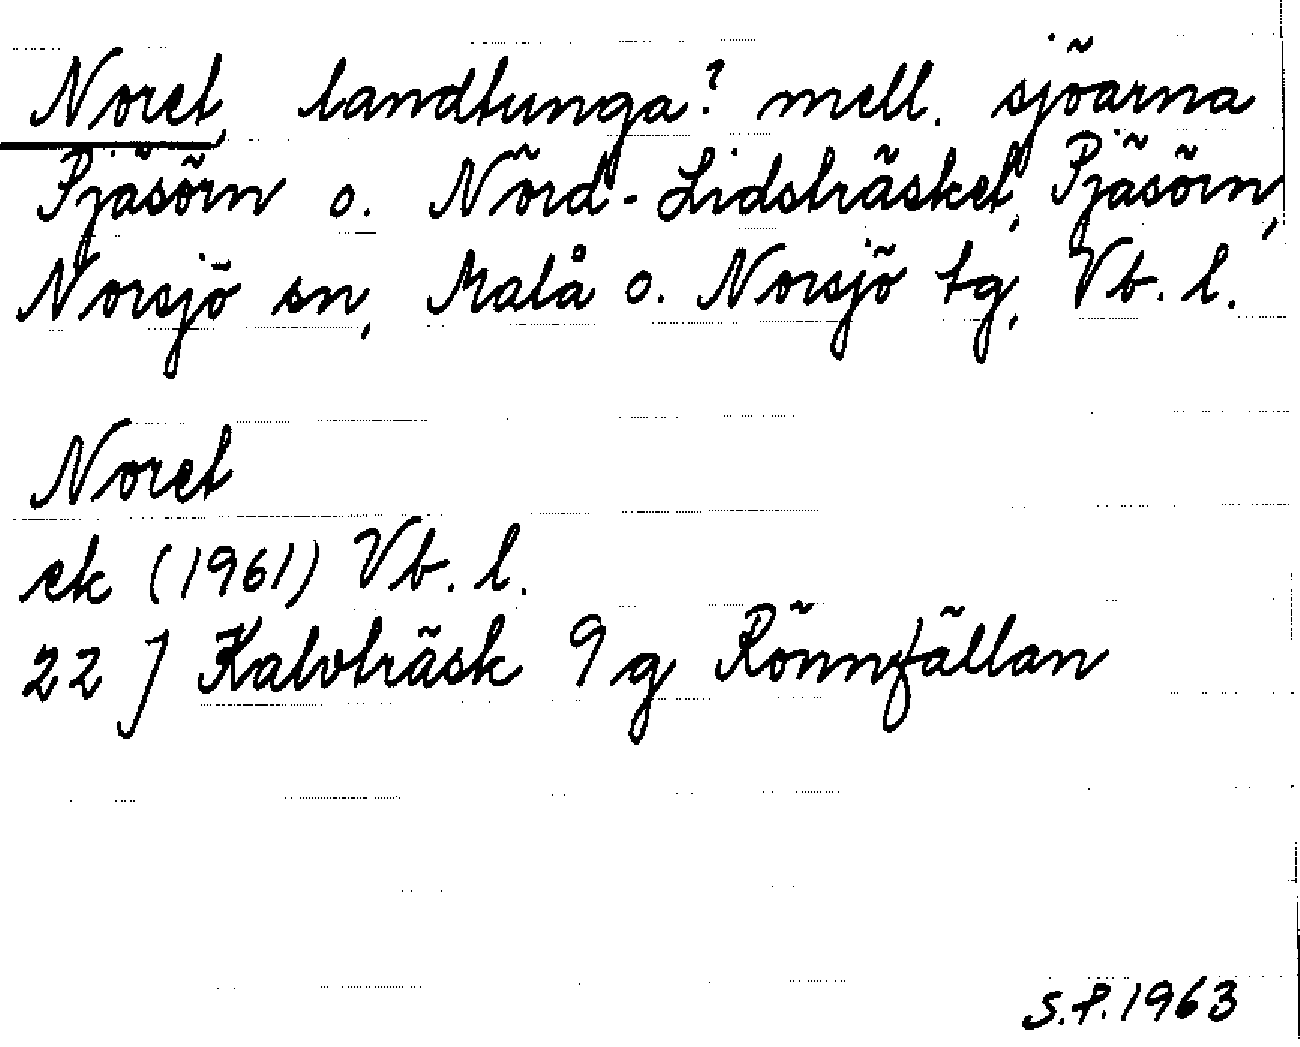 Noret, landtunga? mell. sjöarna
Pjäsörn o. Nörd-Lidsträsket, Pjäsörn,
Norsjö sn, Malå o. Norsjö tg, Vb. l.
Noret
ek (1961) Vb. l.
22 J Kalvträsk 9 g Rönnfällan
S.P. 1963